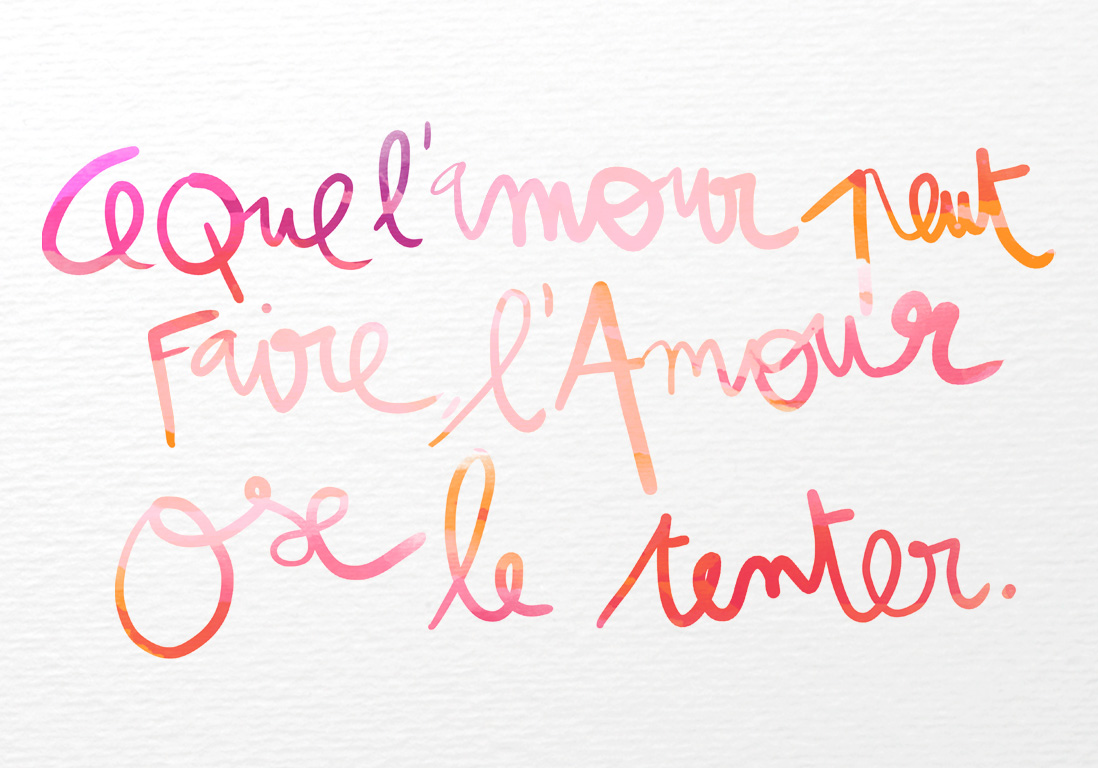 Ce Que l'amour peut
Faire, l'Amour
Ose le tenter.